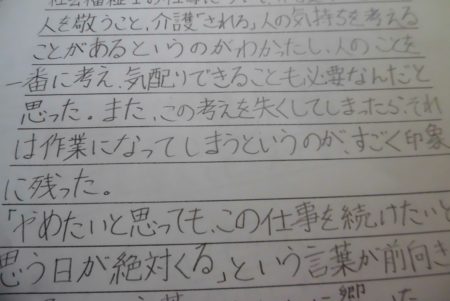 社会福祉士の仕事に
人を敬うこと、介護"される"人の気持ちを考える
ことがあるというのがわかったし、人のことを
一番に考え、気配りできることも必要なんだと
思った。また、この考えを失くしてしまったら、それ
は作業になってしまうというのが、すごく印象
に残った。
「やめたいと思っても、この仕事を続けたいと
思う日が絶対くる」という言葉が前向き